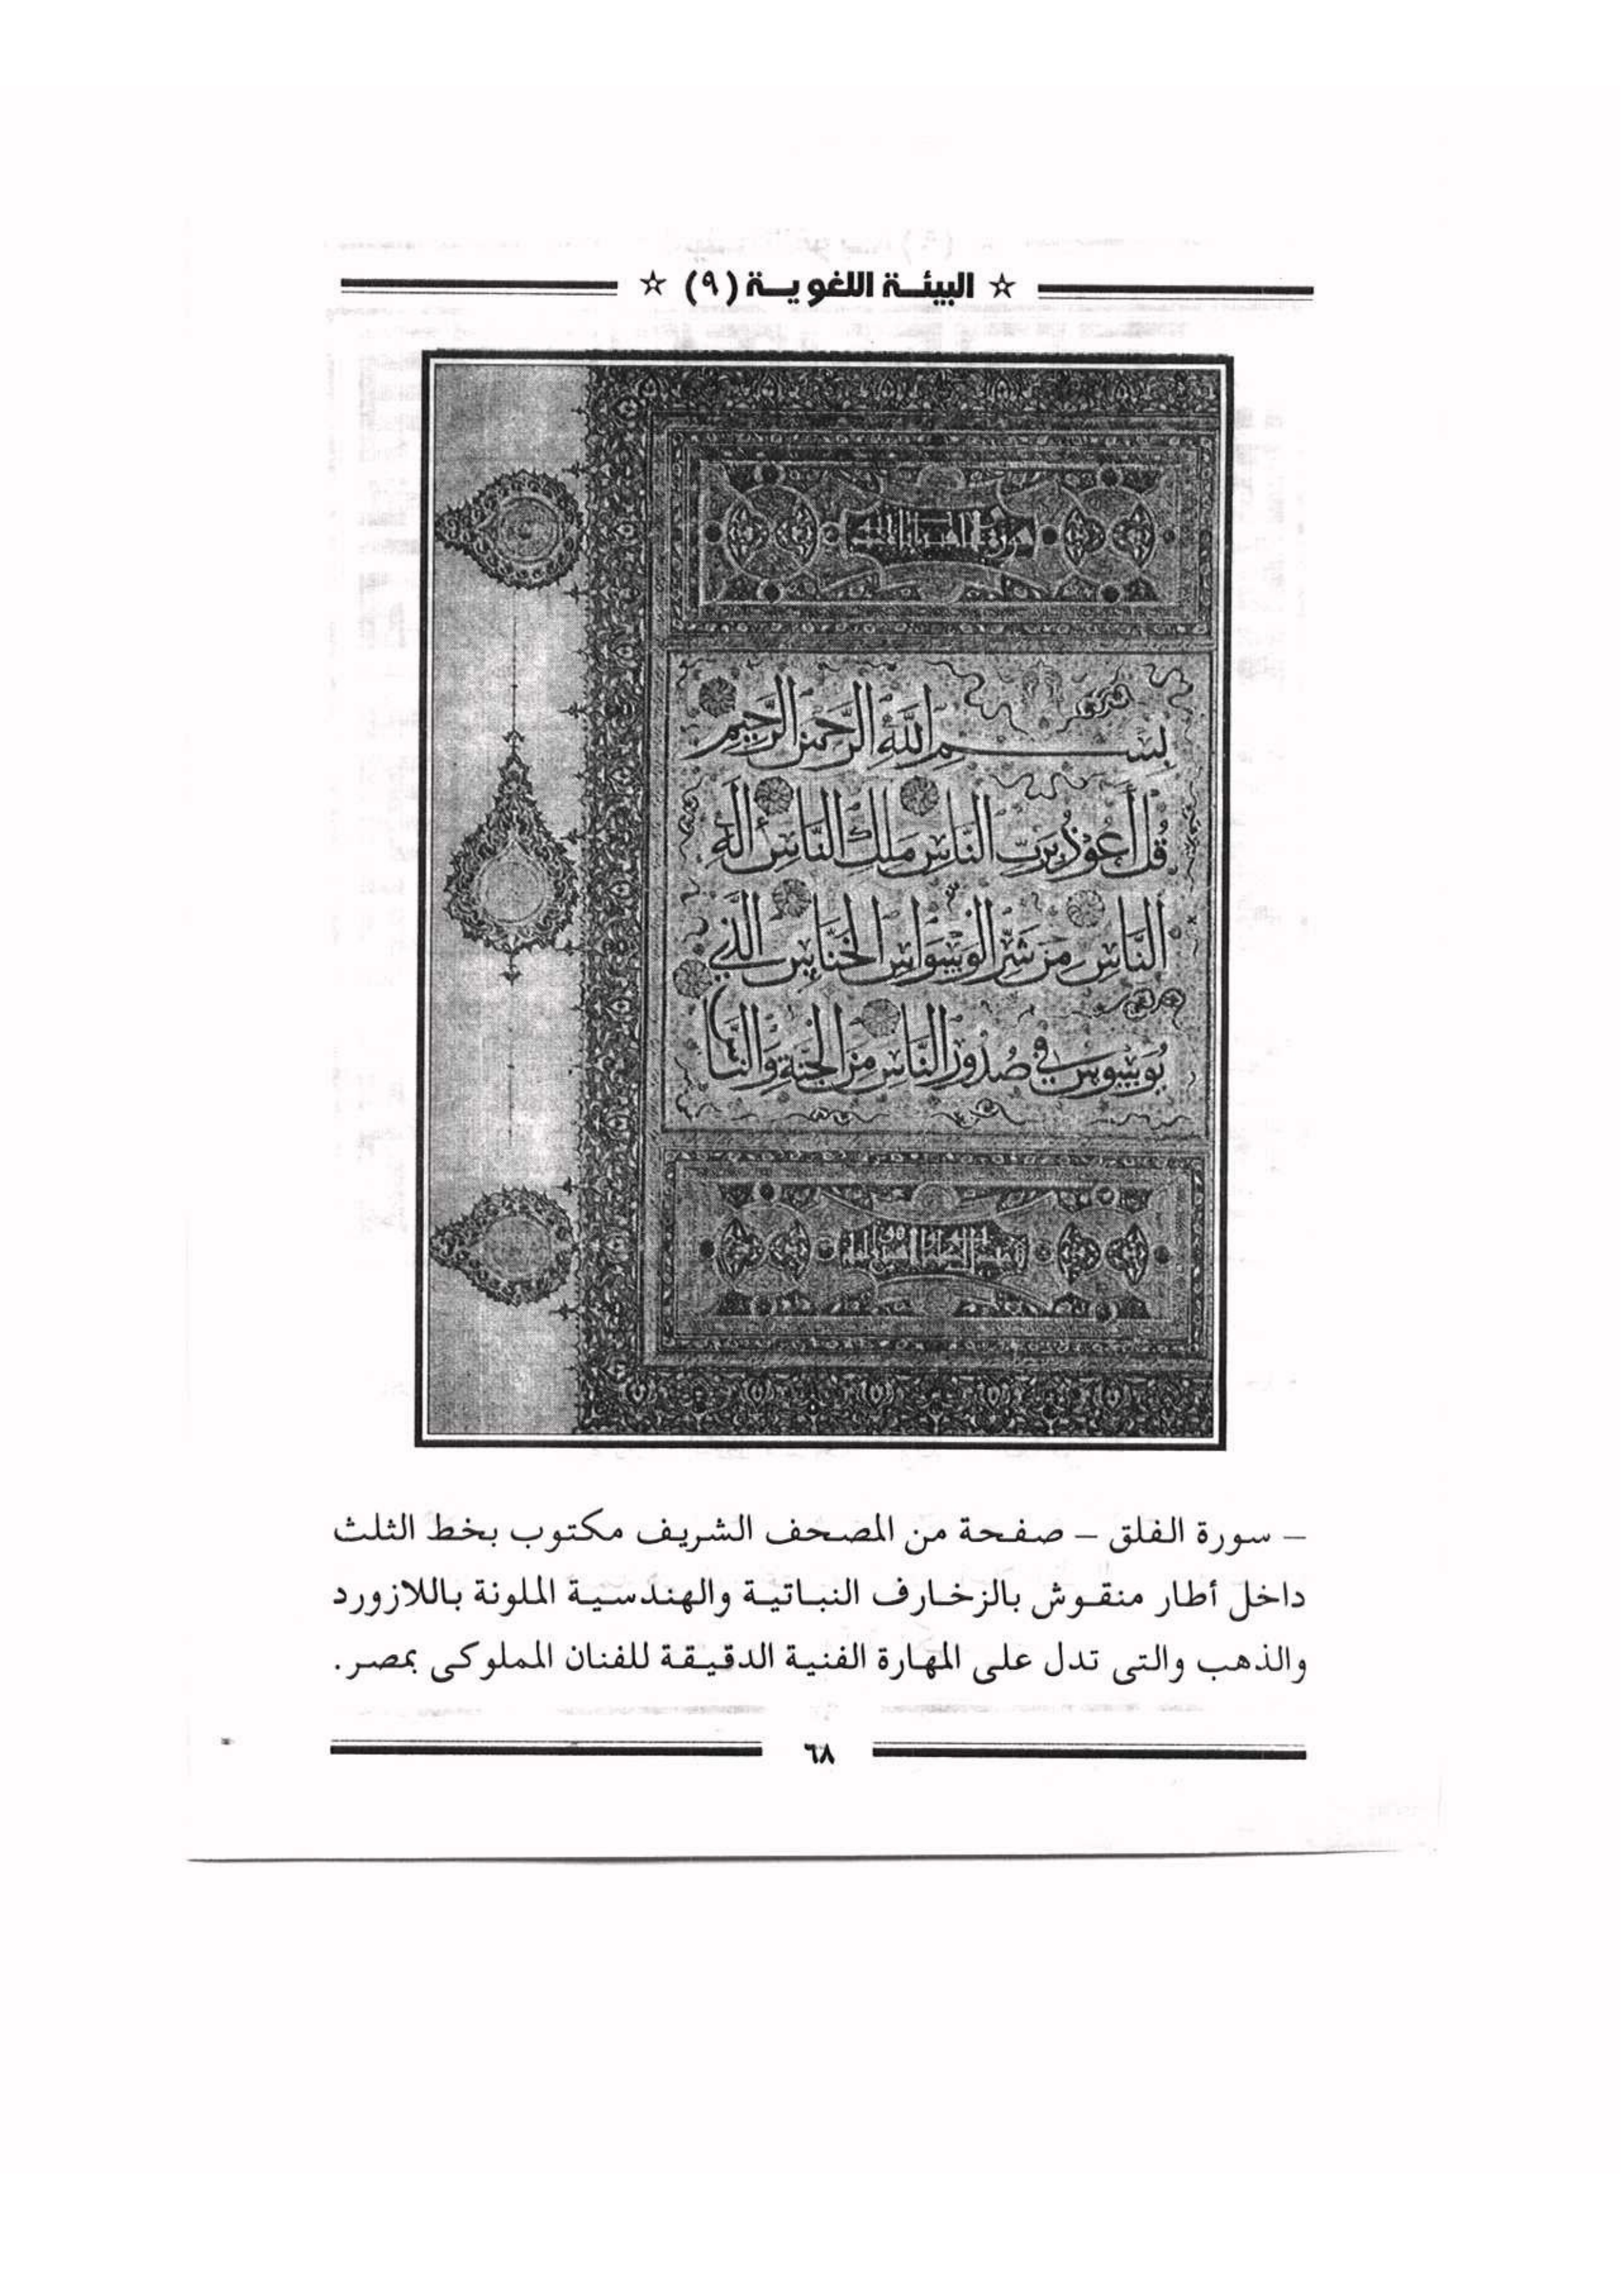 ☆ البيئـة اللغويـة (٩) ☆
بِسْمِ اللَّهِ الرَّحْمَنِ الرَّحِيمِ
قُلْ أَعُوذُ بِرَبِّ النَّاسِ مَلِكِ النَّاسِ إِلَهِ
النَّاسِ مِنْ شَرِّ الْوَسْوَاسِ الْخَنَّاسِ الَّذِي
يُوَسْوِسُ فِي صُدُورِ النَّاسِ مِنَ الْجِنَّةِ وَالنَّاسِ
– سورة الفلق – صفحة من المصحف الشريف مكتوب بخط الثلث
داخل أطار منقوش بالزخارف النباتية والهندسية الملونة باللازورد
والذهب والتى تدل على المهارة الفنية الدقيقة للفنان المملوكى بمصر.
٦٨